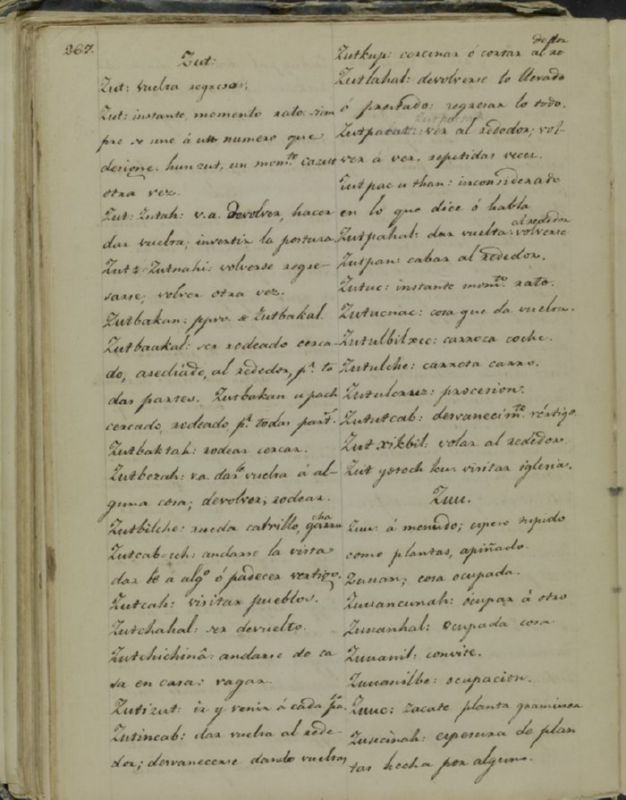 267.
Zut:
Zut: vuelta regresar;
Zut: instante, momento rato. siem
pre se une á un numero que
designe. hunzut, un mom.to
otra vez.
Zut: Zutah: v.a. Devolver, hacer
dar vuelta; invertir la postura
Zut: Zutnahi: volverse regre-
sarse; volver otra vez.
Zutbakan: ppro. de Zutbakal
Zutbaakal: ser rodeado cerca-
do, asediado, al rededor, p.r to
das partes. Zutbakan u pach
cercado, rodeado p.r todas part.s
Zutbaktah: rodear cercar.
Zutbezah: va. dar vuelta á al-
guna cosa; devolver, rodear.
Zutbilche: rueda catrillo,
Zutcab ich: andarse la vista
dar á alg.o ó padecer vertigo.
Zutcah: visitar pueblos.
Zutchahal: ser devuelto.
Zutchichiná: andarse de ca
sa en casa: vagar.
Zutizut: ir y venir á cada
Zutincab: dar vuelta al rede-
dor; desvanecerse dando vueltas
Zutkup: cercenar ó cortar al re
dedor
Zutlahal: devolverse lo llevado
ó prestado: regresar lo todo.
Zutpacat: ver al rededor; vol-
ver á ver, repetidas veces.
Zutpac u than: inconsiderado
en lo que dice ó habla
al rededor
Zutpahal: dar vuelta: volverse
Zutpan: cabar al rededor.
Zutuc: instante mom.to rato.
Zutucnac: cosa que da vueltas.
Zutulbilxec: carroza coche.
Zutulche: carreta carro.
Zutulonuz: procesion.
Zututcab: desvanecim.to vértigo.
Zut xikbil: volar al rededor
Zut yotoch ku: visitar iglesia.
Zuu.
Zuu: á menudo; espeso tupido
como plantas, apiñado.
Zuuan; cosa ocupada.
Zuuancunah: ocupar á otro
Zuuanhal: ocupada cosa
Zuuanil: convite.
Zuuanilbe: ocupacion.
Zuuc: zacate planta graminea
Zuucinah: espesura de plan
tas hecha por alguno.